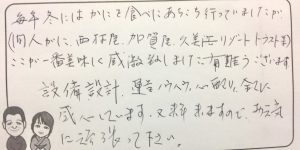 毎年冬にはかにを食べにあちこち行っていましたが
(間人がに、西村屋、加賀屋、久美浜リゾートトラスト等)
ここが一番美味しく感激致しました。有難うございます
設備設計、運営ノウハウ、心配り、全てに
感心しています。又来ますので、お元気
に頑張って下さい。